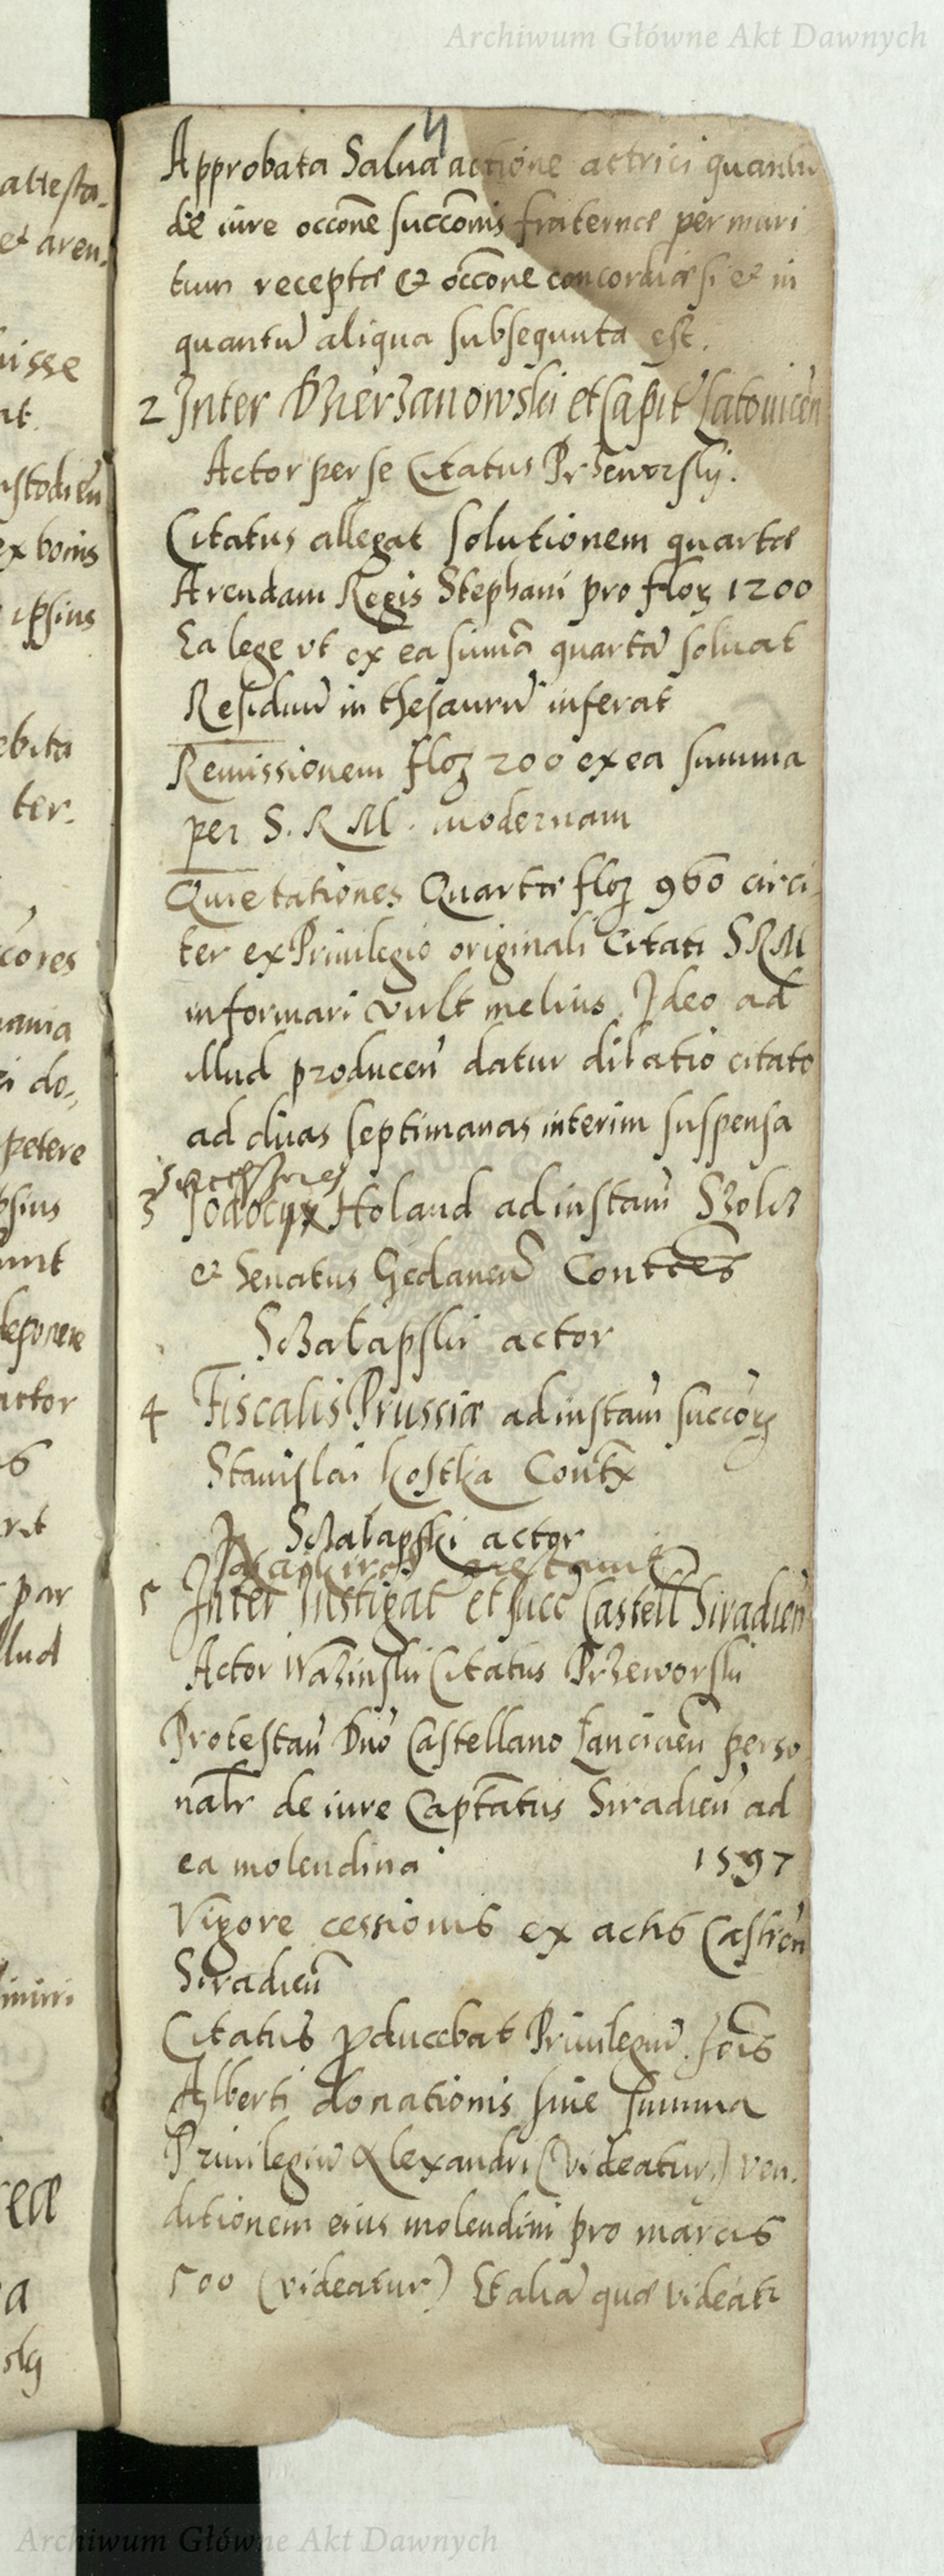 Archiwum Główne Akt Dawnych
4
Approbata Salua actione actrici quantũ
de iure occõne succõnis fraternæ per mari
tum receptæ & occõne concordiæ si et in
quantũ aliqua subsequuta est.
2 Inter Dzierzanowski et Capit Latouicen̄
Actor per se Citatus Przeworsky.
Citatus allegat solutionem quartæ
Arendam Regis Stephani pro floꝝ 1200
Ea lege vt ex ea sum̃a quartã soluat
Residuũ in thesaurũ inferat
Remissionem floꝝ 200 ex ea summa
per S. R M. modernam
Quietationes Quartæ floꝝ 960 circi
ter ex Priuilegio originali Citati SRM
informari vult melius. Ideo ad
illud producen̄ datur dilatio citato
ad duas septimanas interim suspensa
Successores
3 Holand ad instan̄
et Senatus Gedanen̄
Szałapski actor
4 Fiscalis Prussiæ ad instan̄ succoꝝ
Stanislai Kostka Contx
Szałapski actor
5 Inter Instigat et succ Castell Siradien̄
Actor Wazinski Citatus Przeworski
Protestan̄ Dno Castellano Lancicien̄ perso
nalr de iure Captatus Siradien̄ ad
ea molendina 1597
Vigore cessionis ex actis Castren̄
Siradien̄
Citatus ꝓducebat Priuilegiũ Jois
Alberti donationis siue summa
Priuilegiũ Alexandri (videatur) ven.
ditionem eius molendini pro marcis
500 (videatur) Et alia quæ videatr
attesta.
et aren.
uisse
nt.
ustodien̄
ex bonis
ipsius
ebita
ter.
cores
i do,
petere
psius
unt
deponere
actor
par
llud
Archiwum Główne Akt Dawnych